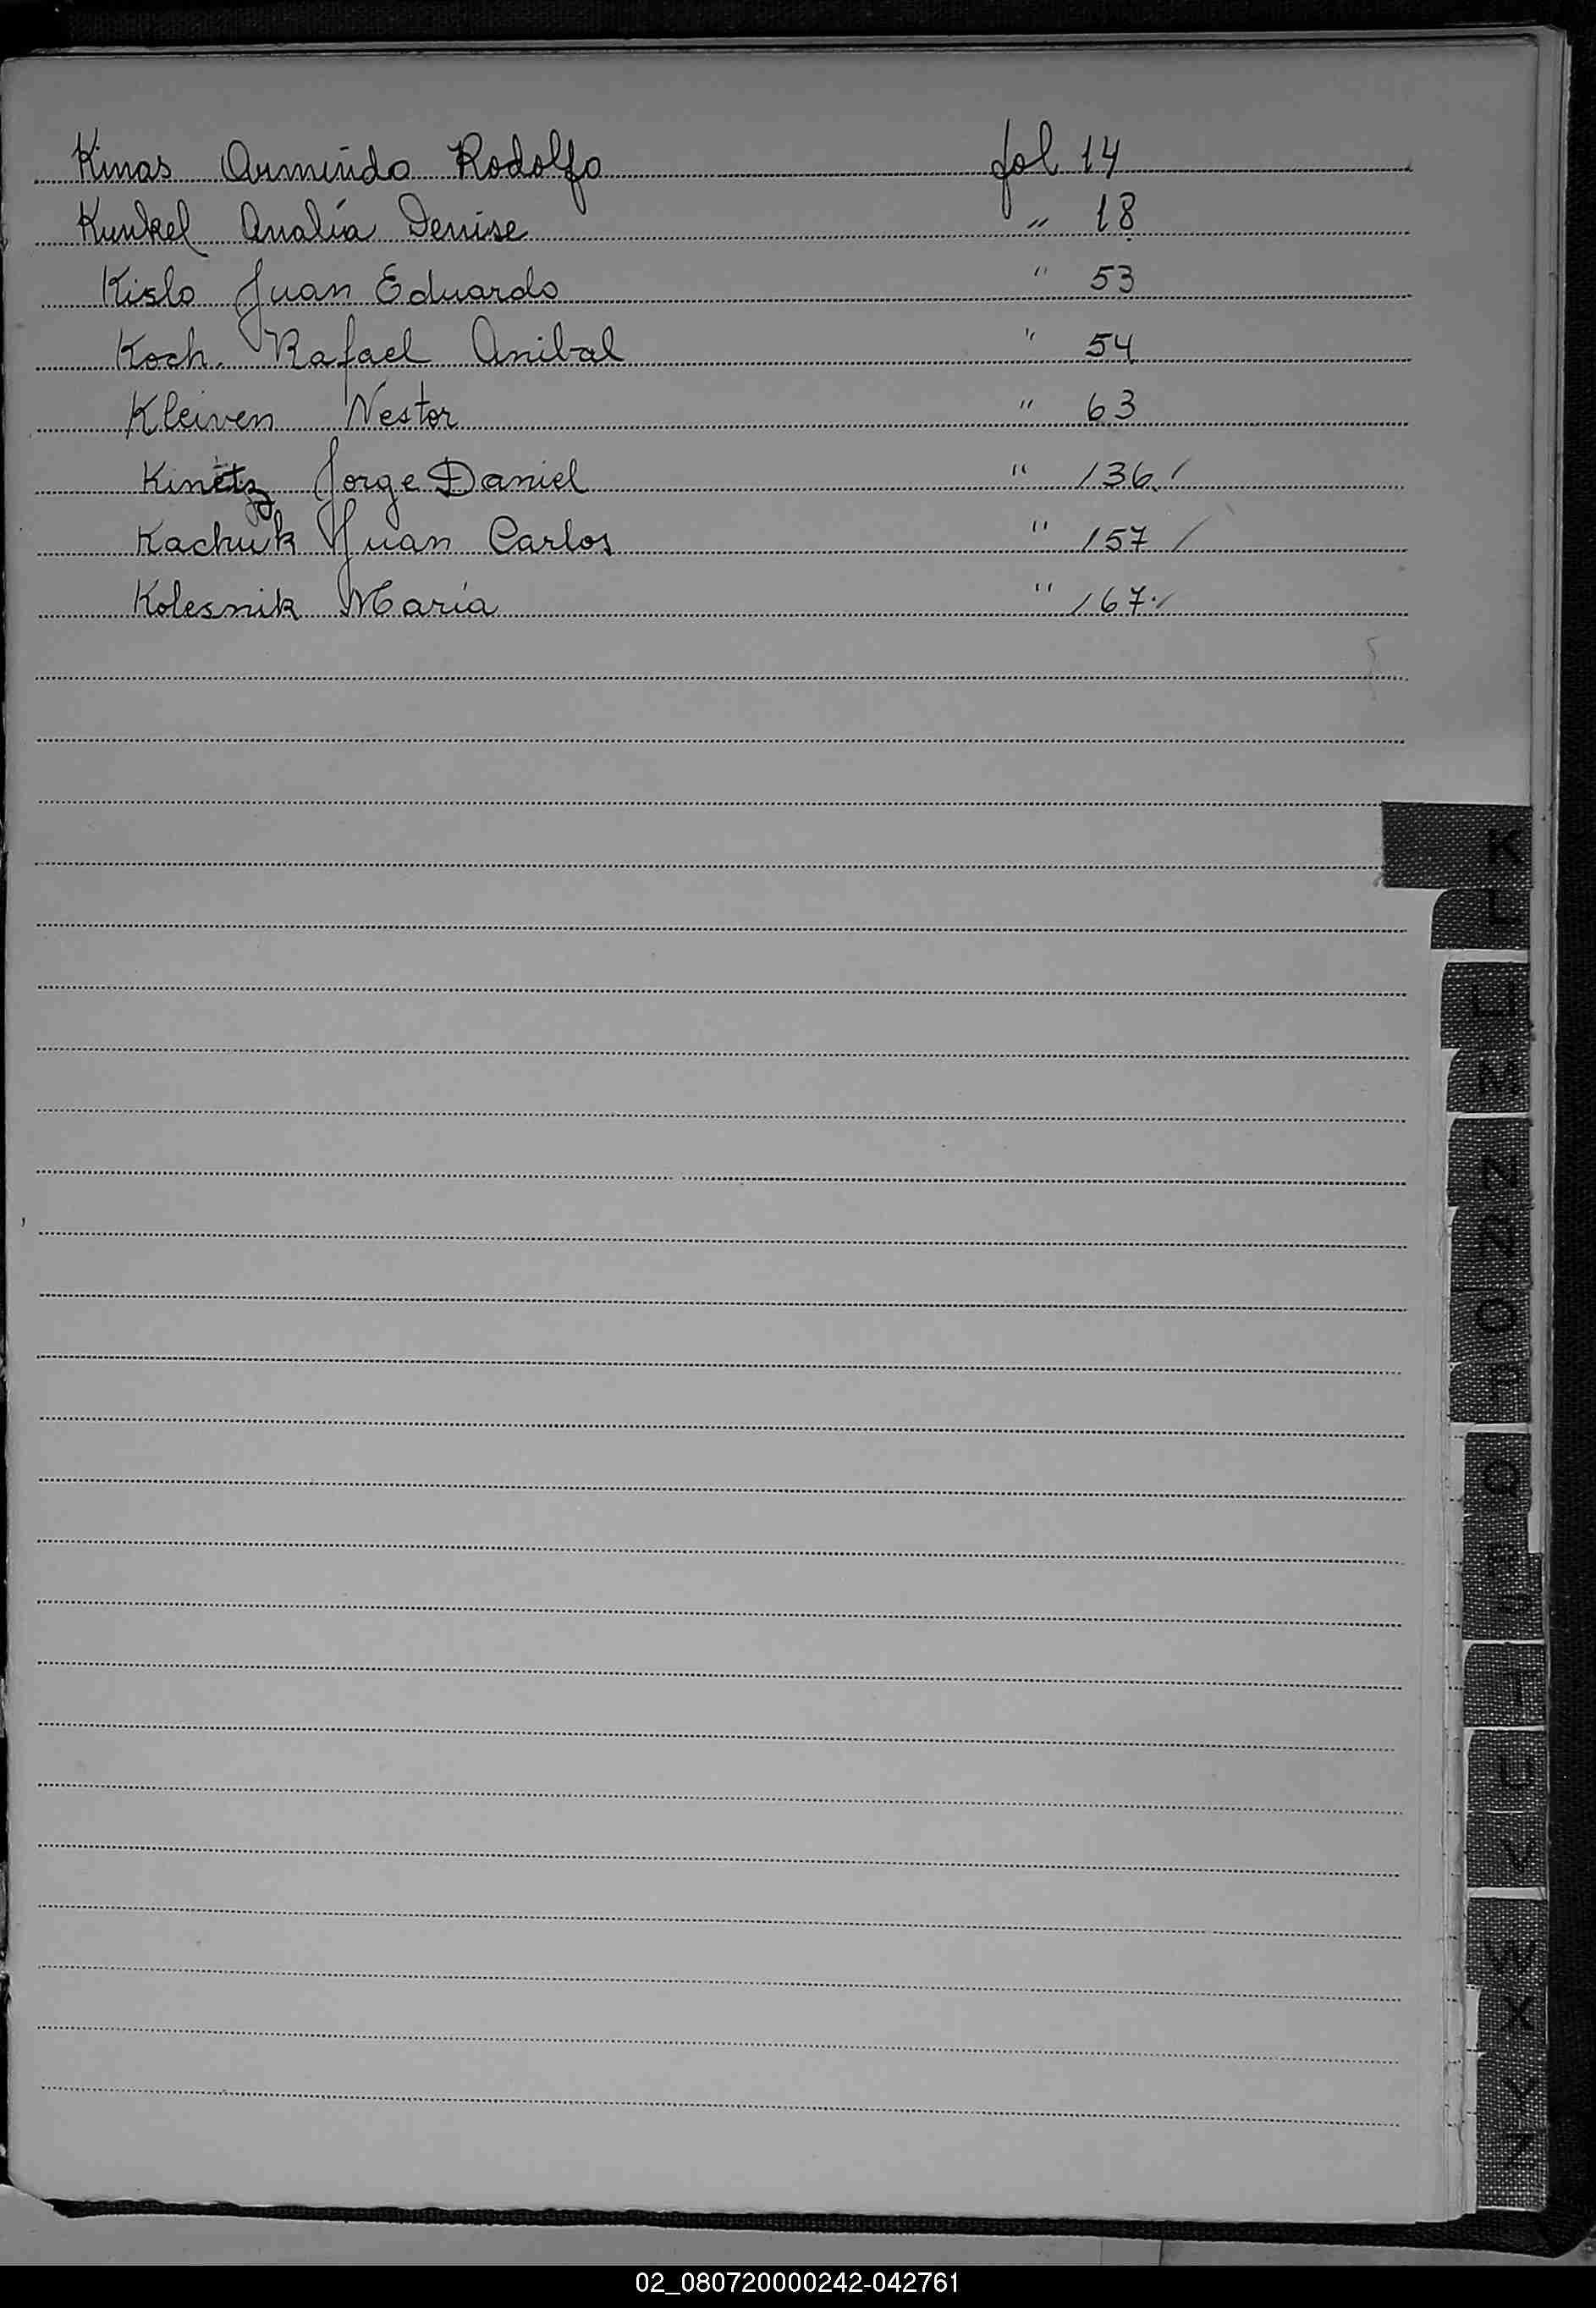 Kinas Armindo Rodolfo fol 14
Kunkel Analía Denise " 18
Kislo Juan Eduardo " 53
Koch Rafael Anibal " 54
Kleiven Nestor " 63
Kinetz Jorge Daniel " 136 /
Kachuk Juan Carlos " 157 /
Kolesnik María " 167 /
K
L
LL
M
N
Ñ
O
P
Q
R
S
T
U
V
W
X
Y
Z
02_080720000242-042761